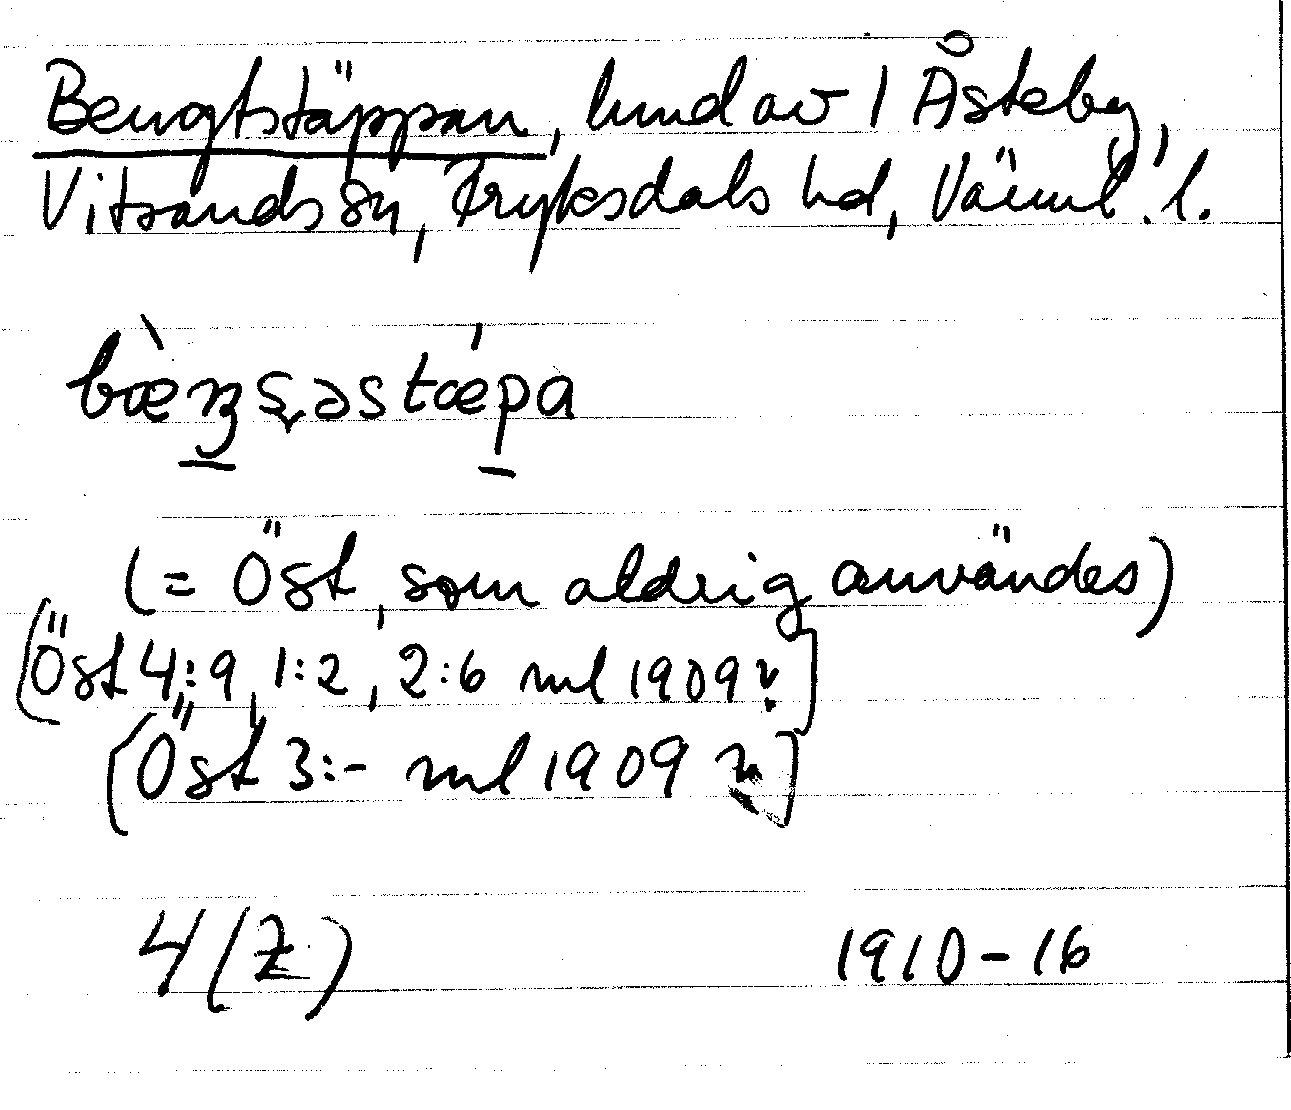 Bengtstäppan, hmd av 1 Åsteby,
Vitsands sn, Fryksdals hd, Värml. l.
(= Öst, som aldrig användes)
(Öst 4:9, 1:2, 2:6 ml 1909
(Öst 3:- ml 1909
4 (Z) 1910-16